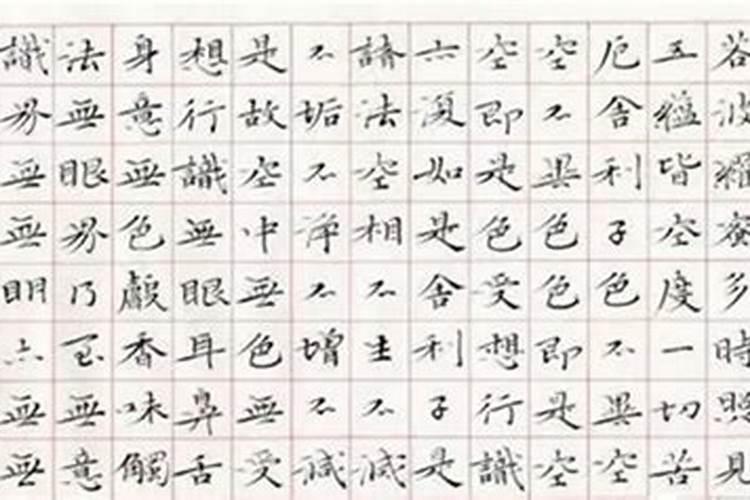 若波羅蜜多時照見
五蘊皆空度一切苦
厄舍利子色不異空
空不異色色即是空
空即是色受想行識
亦復如是舍利子是
諸法空相不生不滅
不垢不淨不增不減
是故空中無色無受
想行識無眼耳鼻舌
身意無色聲香味觸
法無眼界乃至無意
識界無無明亦無無